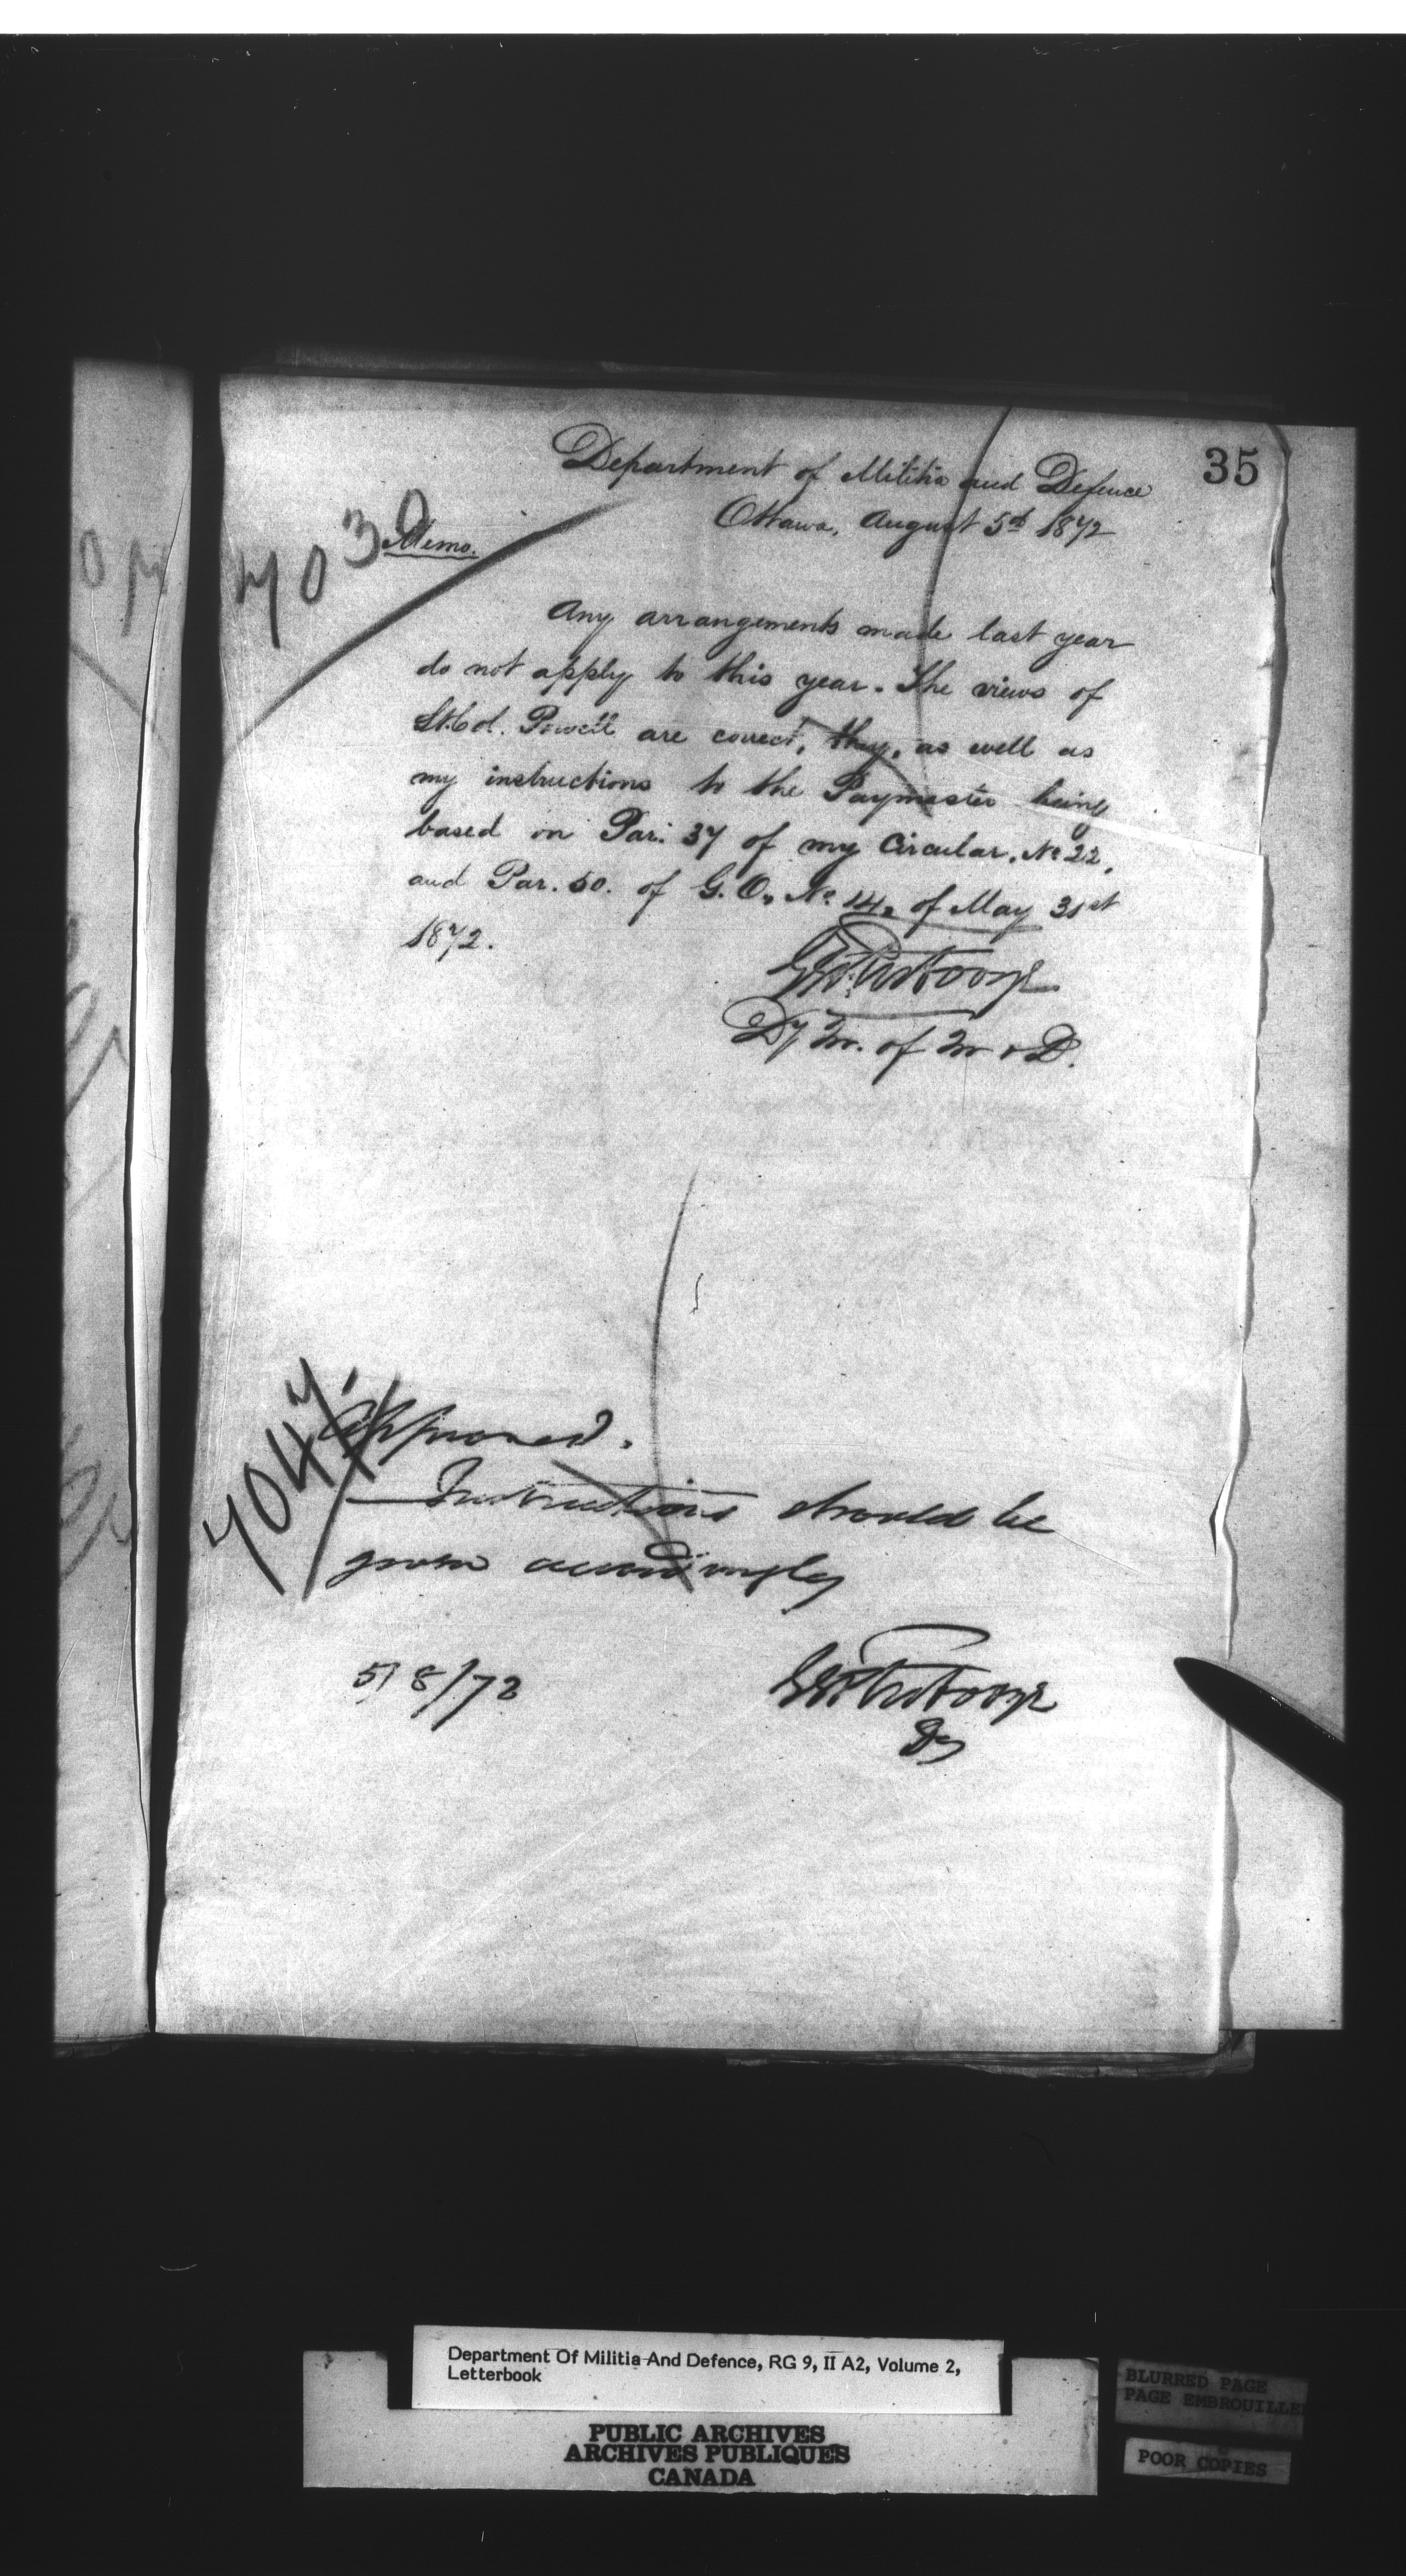 35
Department of Militia and Defence
Ottawa, August 5th 1872
7030
Memo.
Any arrangements made last year
do not apply to this year. The views of
Lt. Col. Powell are correct, they, as well as
my instructions to the Paymaster being
based on Par. 37 of my Circular, No 22,
and Par. 50. of G.O., No 14, of May 31st
1872.
Dy M. of M & D.
7047
Approved.
Instructions should be
given accordingly
5/8/72
Dy
Department Of Militia And Defence, RG 9, II A2, Volume 2,
Letterbook
PUBLIC ARCHIVES
ARCHIVES PUBLIQUES
CANADA
BLURRED PAGE
PAGE EMBROUILLE
POOR COPIES